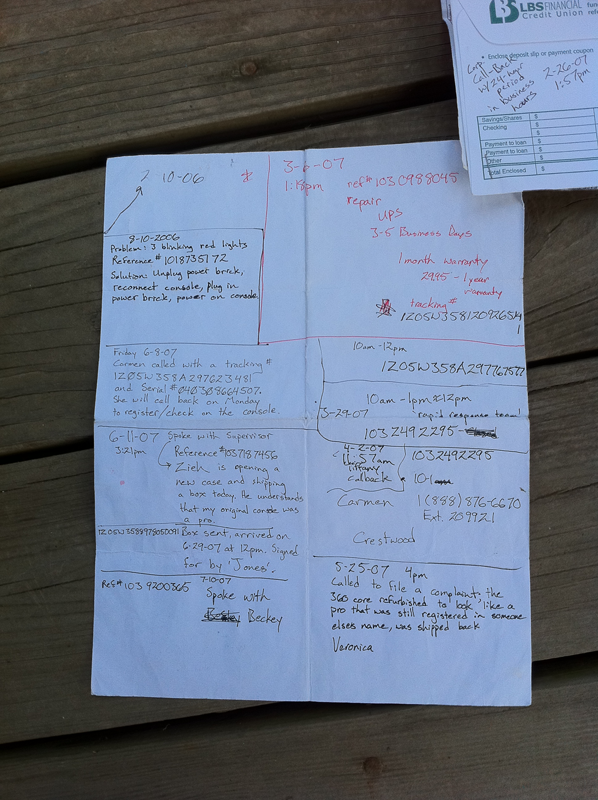 LBS FINANCIAL
Credit Union
Enclose deposit slip or payment coupon
Call-Back
w/ 24-hour
period
in business
hours
2-26-07
1:57pm
Savings/Shares $
Checking $
Payment to loan $
Payment to loan $
Other $
Total Enclosed $
2 10-06
8-10-2006
Problem: 3 blinking red lights
Reference # 1018735172
Solution: Unplug power brick,
reconnect console, plug in
power brick, power on console.
3-6-07
1:18pm ref# 1030988045
repair
UPS
3-5 Business Days
1 month warranty
29.95 - 1 year
warranty
tracking #
1Z05W3581209265141
Friday 6-8-07
Carmen called with a tracking #
1Z05W358A297623481
and Serial # 040308664507.
She will call back on Monday
to register/check on the console.
10am - 12pm
1Z05W358A297767577
10am - 1pm 12pm
3-29-07 rapid response team!
1032492295
6-11-07 Spoke with Supervisor
3:21pm Reference # 1037187456
Zieh is opening a
new case and shipping
a box today. He understands
that my original console was
a pro.
1Z05W3588978050091 Box sent, arrived on
6-29-07 at 12pm. Signed
for by 'Jones'.
4-2-07
11:57am
tiffany
callback
1032492295
10-1
Carmen 1(888) 876-6670
Ext. 209921
Crestwood
Ref# 103 9200365 7-10-07
Spoke with
Beckey
5-25-07 4pm
Called to file a complaint; the
360 core refurbished to look like a
pro that was still registered in someone
elses name, was shipped back
Veronica